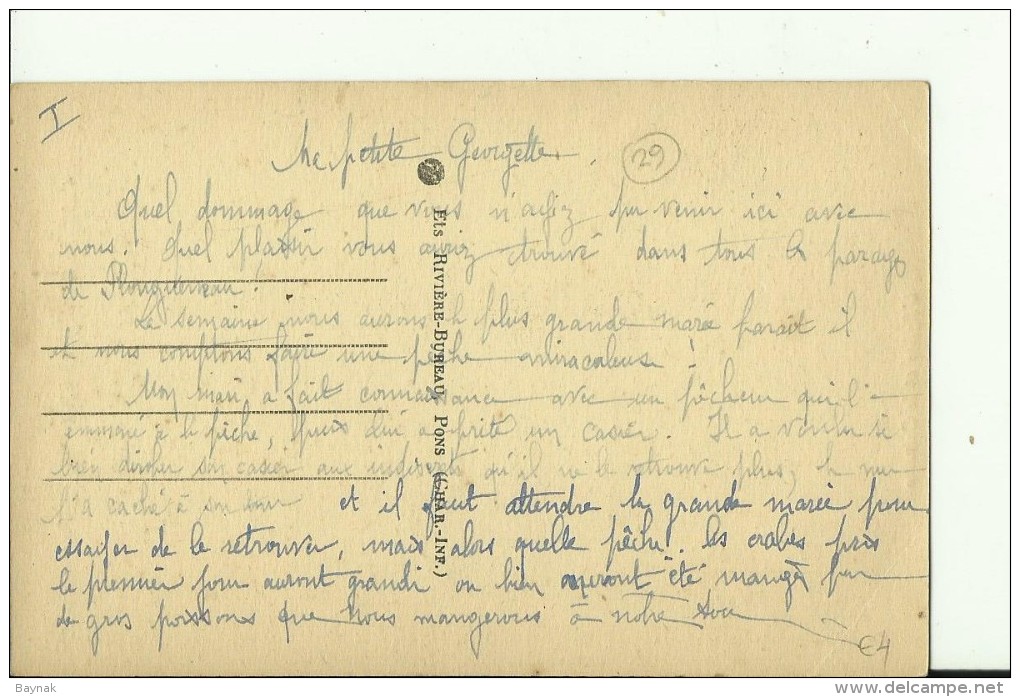 I
Ma petite Georgette.
29
Quel dommage que vous n'ayez pu venir ici avec
nous. Quel plaisir vous auriez trouvé dans tous les parages
de Plouguerneau !
La semaine nous aurons la plus grande marée parait il
et nous comptons faire une pêche miraculeuse !
Mon mari a fait connaissance avec un pêcheur qui l'a
emmené à la pêche, puis lui a prêté un casier. Il a voulu si
bien dérober son casier aux indiscrets qu'il ne le retrouve plus, la mer
l'a caché à son tour et il faut attendre la grande marée pour
essayer de le retrouver, mais alors quelle pêche. les crabes pris
le premier jour auront grandi ou bien auront été mangé par
de gros poissons que nous mangerons à notre tour
Ets RIVIÈRE-BUREAU PONS (CHAR.-INF.)
€4
Baynak
www.delcampe.net